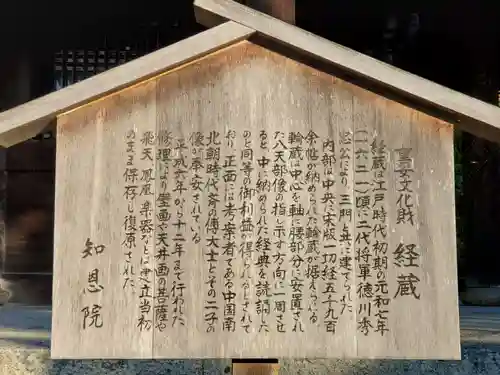 重要文化財　経蔵
経蔵は江戸時代初期の元和七年
(一六二一)頃に二代将軍徳川秀
忠公により、三門と共に建てられた。
内部は中央に宋版一切経五千九百
余帖が納められた輪蔵が据えている。
輪蔵は中心を軸に腰部分に安置され
た八天部像の指し示す方向に一周させ
ると、中に納められた経典を読誦した
のと同等の御利益が得られるとされて
おり、正面には考案者である中国南
北朝時代斉の傅大士とその二子の
像が奉安されている。
平成六年から十二年まで行われた
修理により壁画や天井画の菩薩や
飛天、鳳凰、楽器などは建立当初
のまま保存し復原された。
知恩院